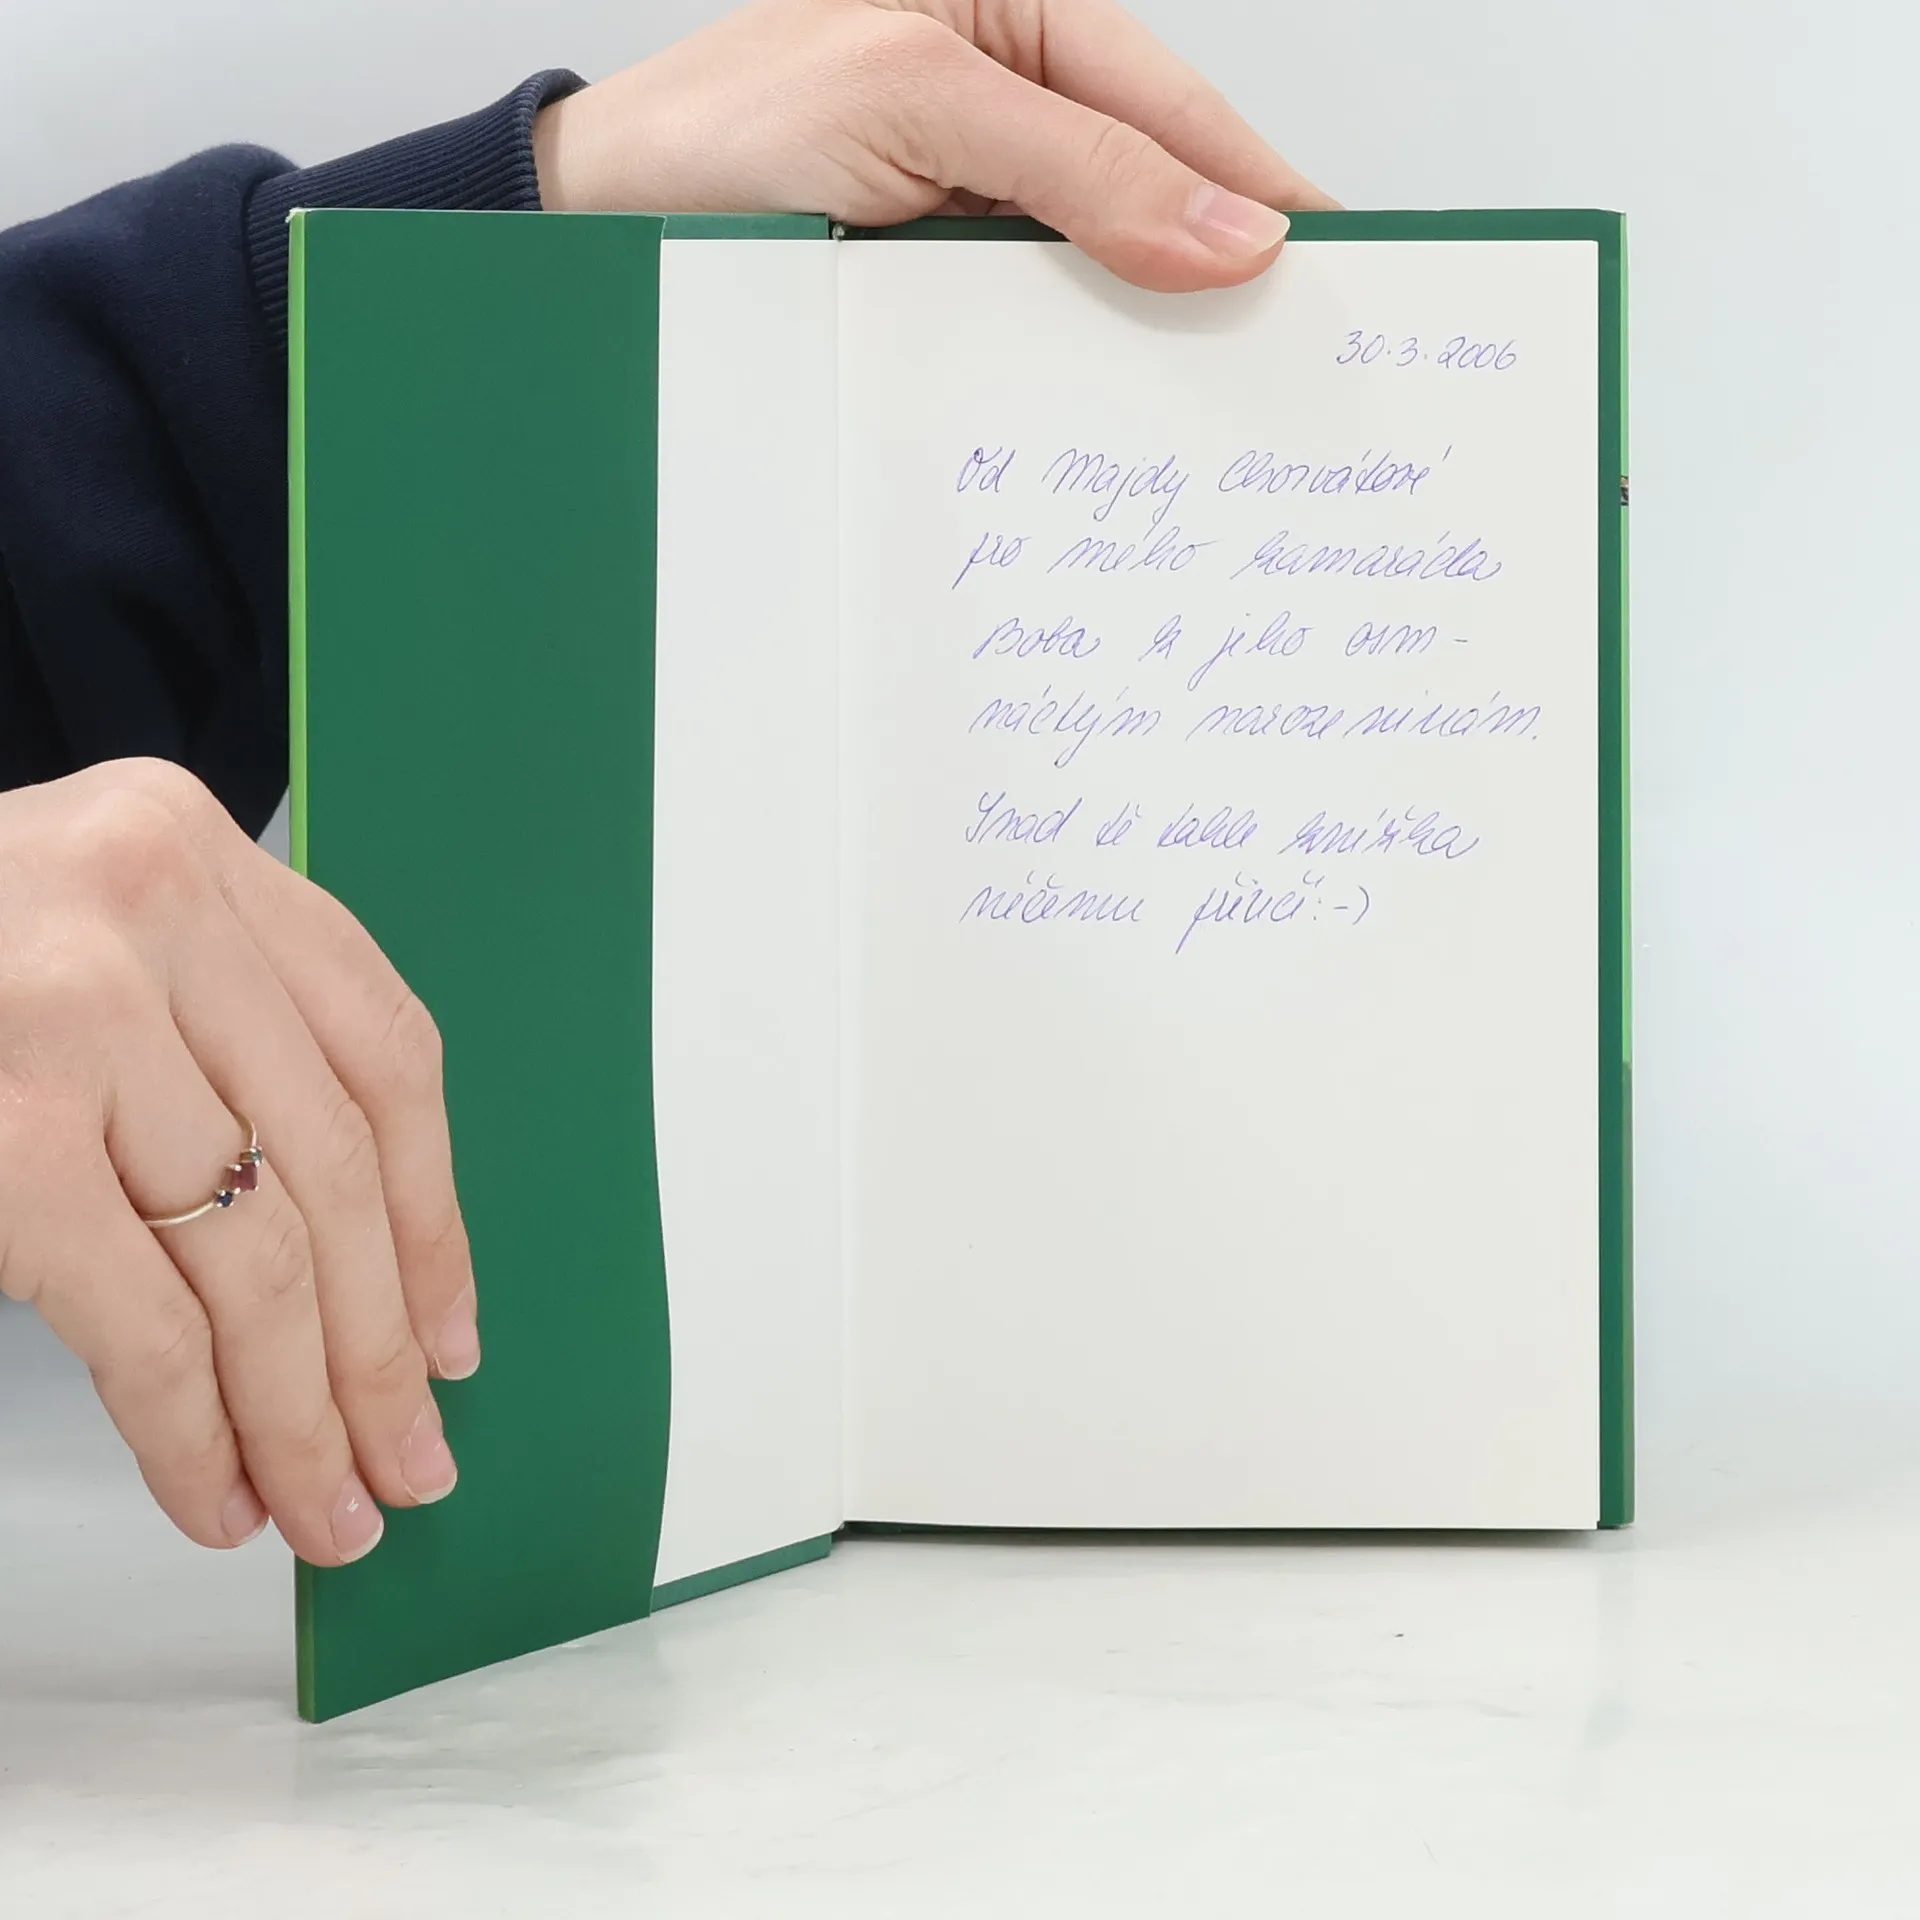 30.3.2006
Od Majdy Chorvátové
pro mého kamaráda
Boba k jeho osm-
náctým narozeninám.
Snad tě tahle knížka
něčemu přiučí :-)